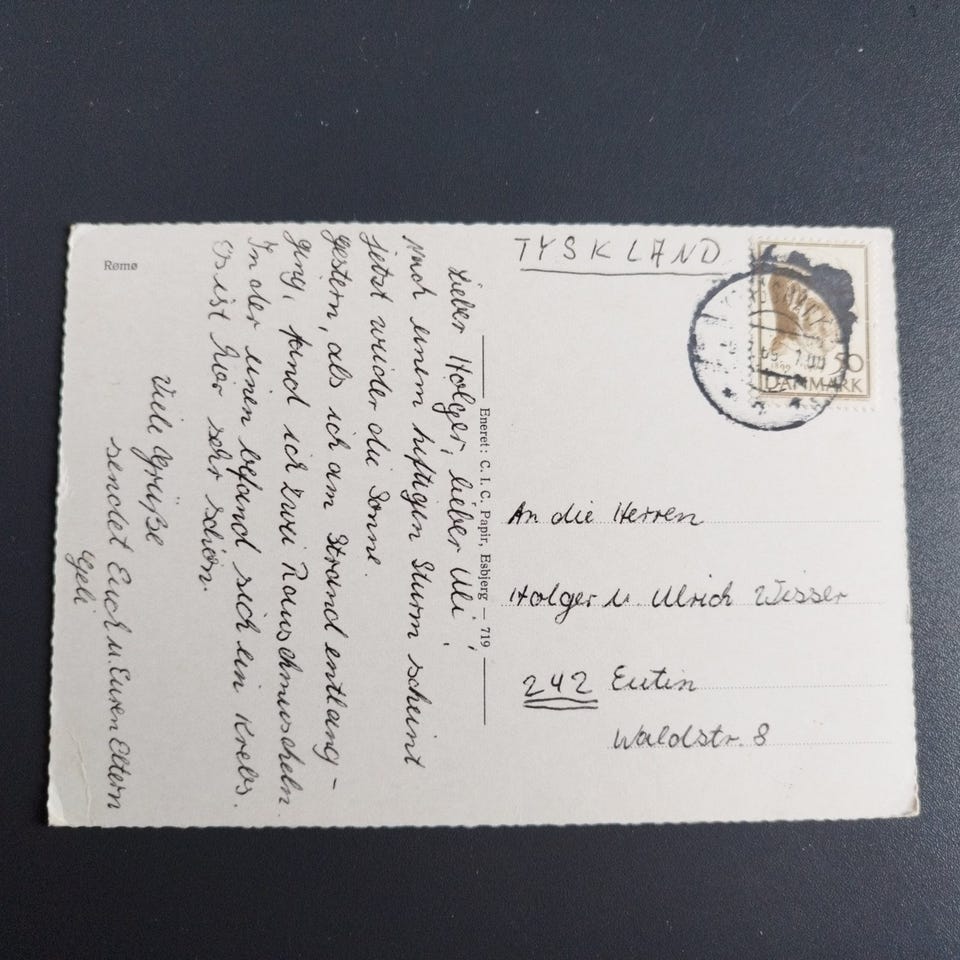 Rømø
Lieber Holger, lieber Uli!
Nach einem heftigen Sturm scheint
jetzt wieder die Sonne.
Gestern, als ich am Strand entlang-
ging, fand ich zwei Rauschmuscheln.
In der einen befand sich ein Krebs.
Es ist hier sehr schön.
Viele Grüße
sendet Euch u. Euren Eltern
Geli
Eneret: C. I. C. Papir, Esbjerg — 719
TYSKLAND
50
DANMARK
An die Herren
Holger u. Ulrich Wisser
242 Eutin
Waldstr. 8